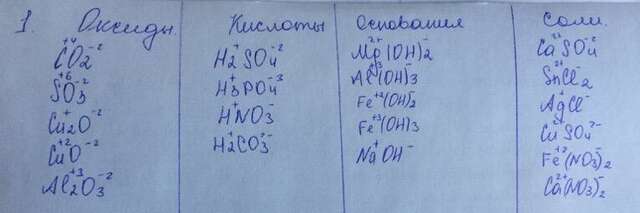 1. Оксиды.
C⁺⁴O₂⁻²
S⁺⁶O₃⁻²
Cu₂⁺O⁻²
Cu⁺²O⁻²
Al₂⁺³O₃⁻²
Кислоты
H₂⁺SO₄⁻²
H₃⁺PO₄⁻³
H⁺NO₃⁻
H₂⁺CO₃⁻
Основания
Mg²⁺(OH)₂⁻
Al⁺³(OH)₃⁻
Fe⁺²(OH)₂⁻
Fe⁺³(OH)₃
Na⁺OH⁻
Соли.
Ca²⁺SO₄⁻²
Sn²⁺Cl₂⁻
Ag⁺Cl⁻
Cu²⁺SO₄²⁻
Fe⁺²(NO₃)₂⁻
Ca²⁺(NO₃)₂⁻